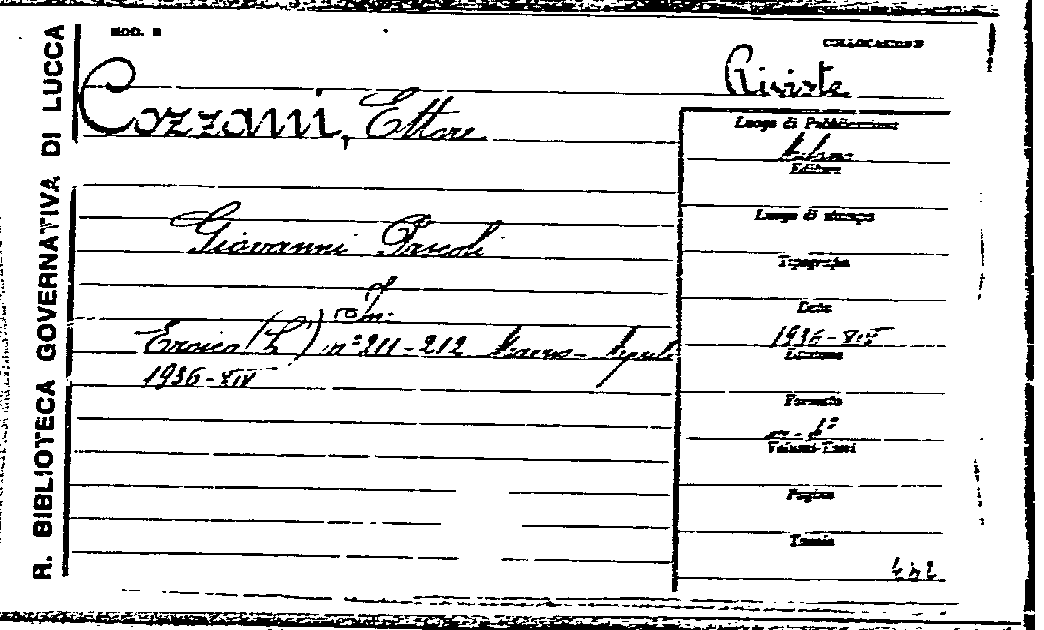 R. BIBLIOTECA GOVERNATIVA DI LUCCA
MOD. B
COLLOCAZIONE
Riviste
Cozzani, Ettore
Giovanni Pascoli
In:
Eroica (L') n° 211-212 Marzo - Aprile
1936-XIV
Luogo di Pubblicazione
Milano
Editore
Luogo di stampa
Tipografia
Data
1936-XIV
Edizione
Formato
in-8°
Volumi-Tomi
Pagine
Tavole
442